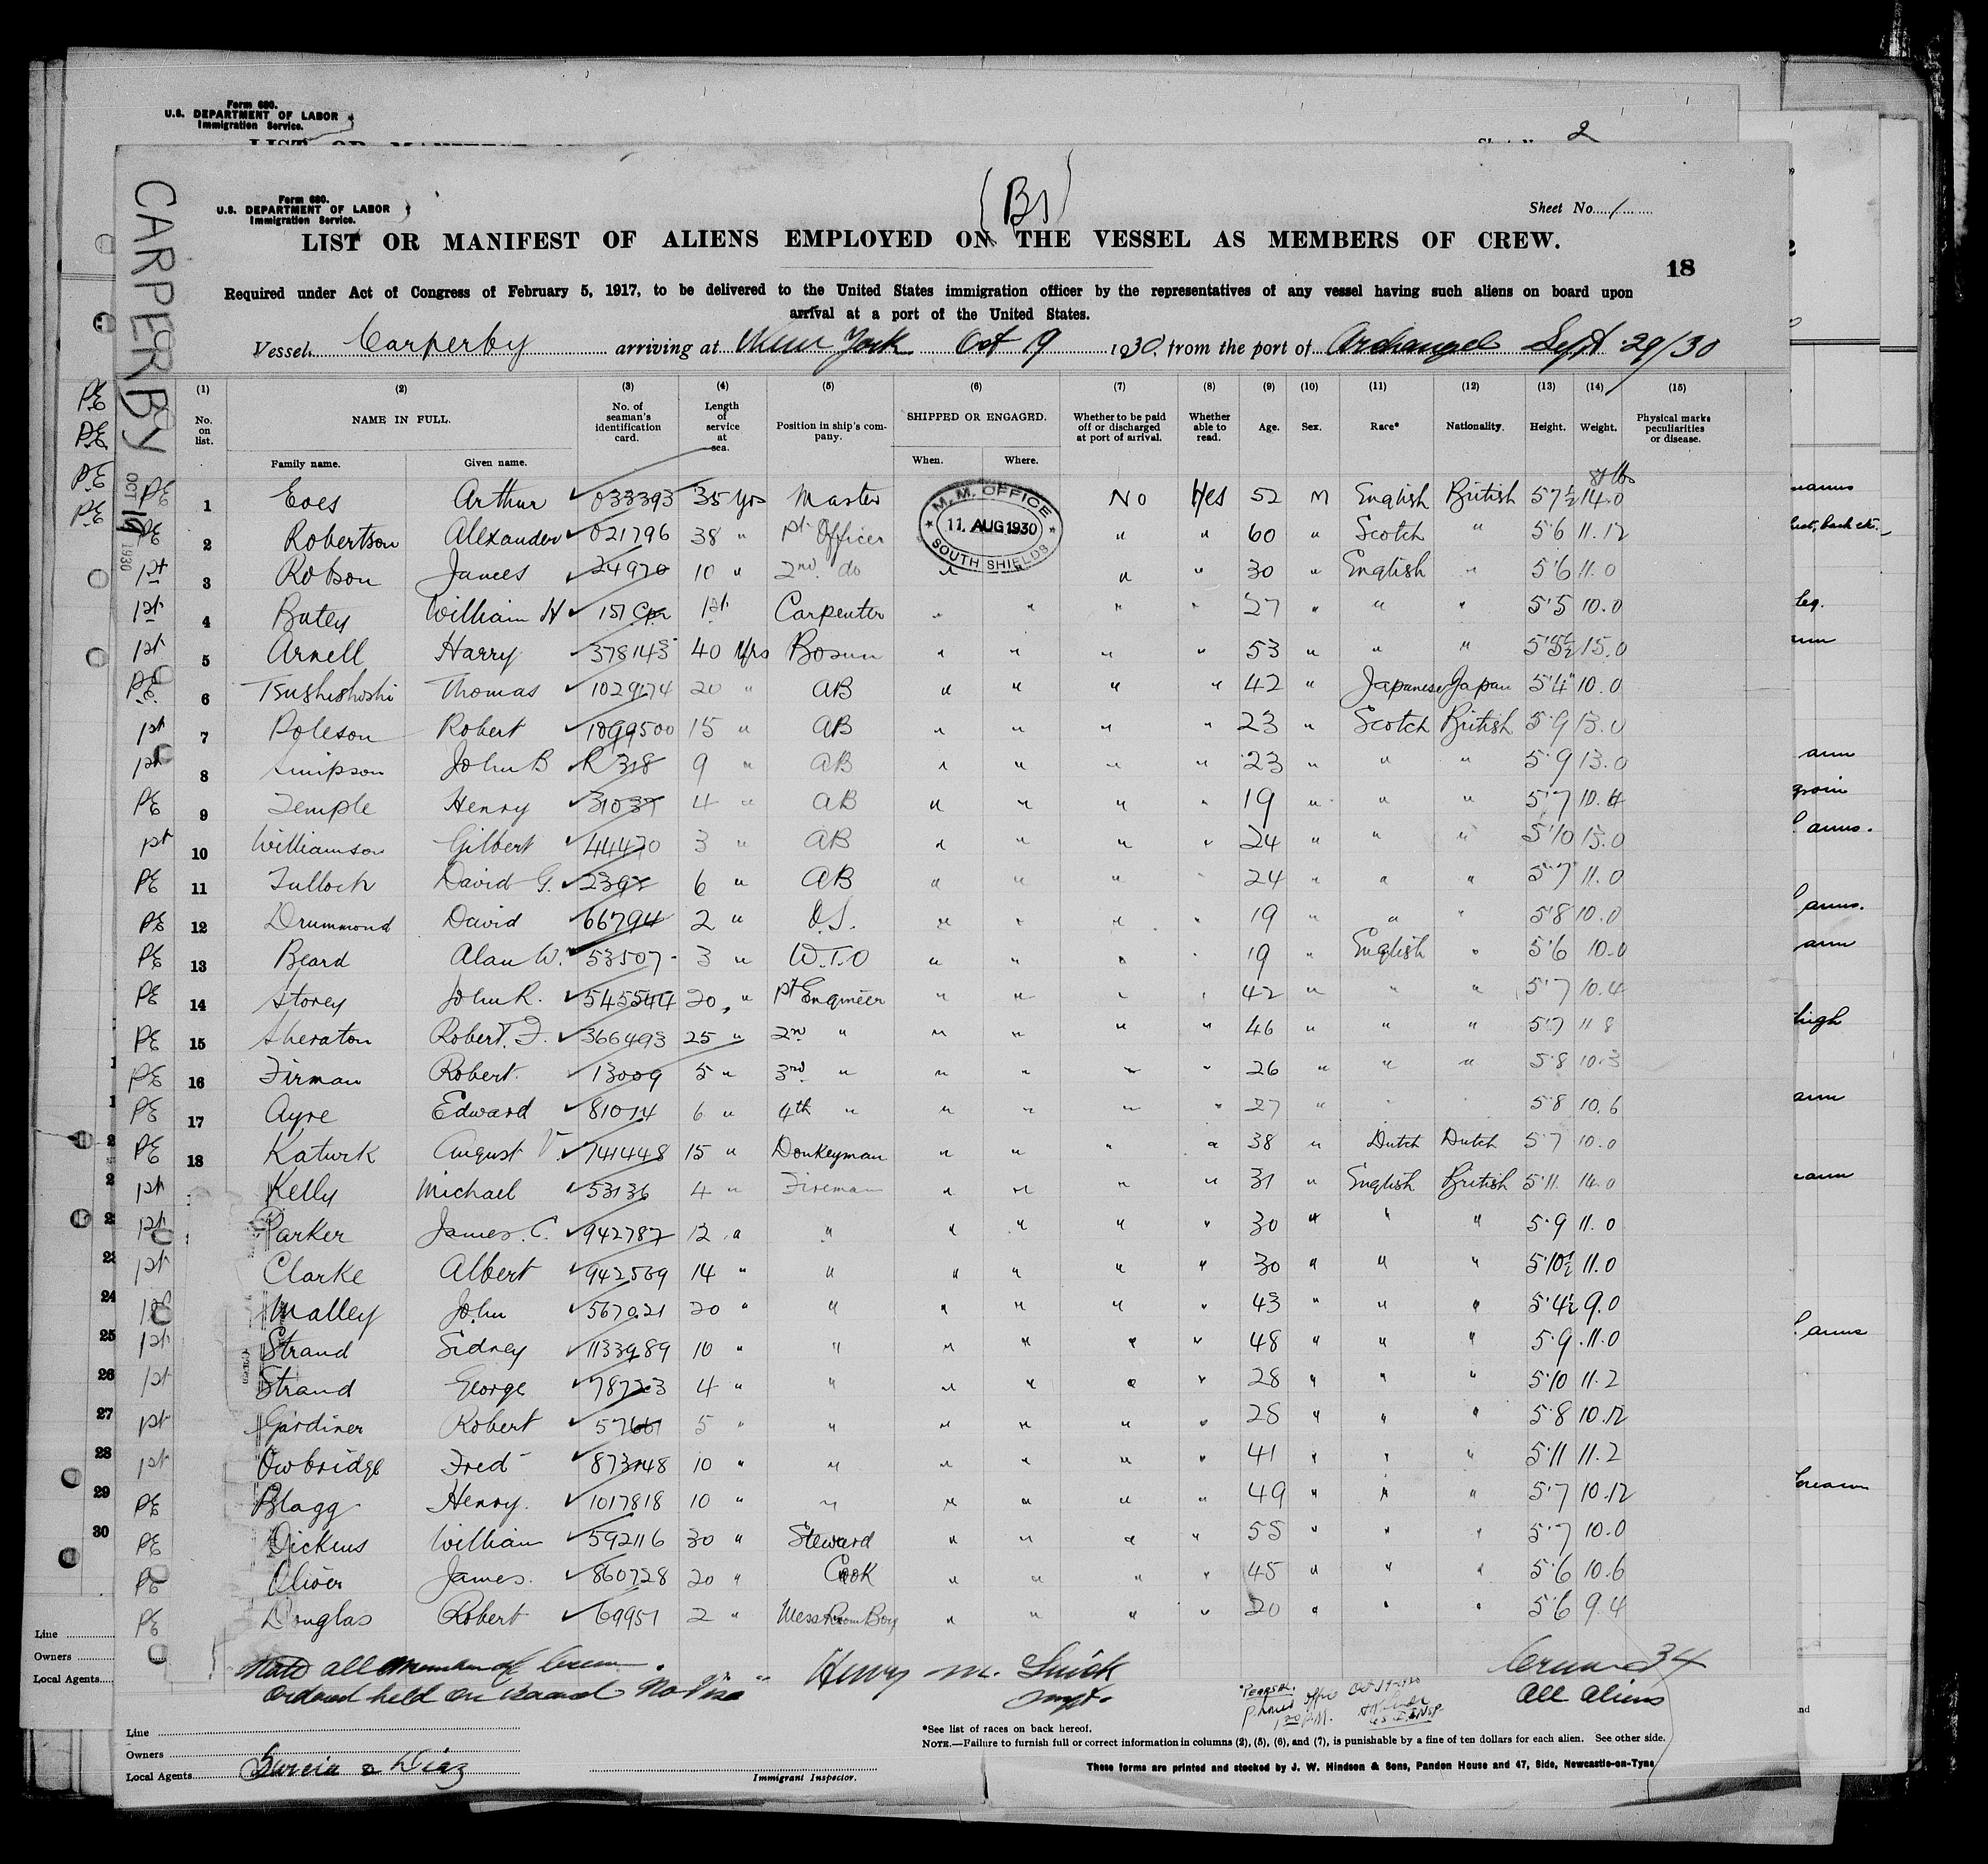 Form 680.
U.S. DEPARTMENT OF LABOR
Immigration Service.
2
CARPERBY
Form 680.
U.S. DEPARTMENT OF LABOR
Immigration Service.
Sheet No. 1
LIST OR MANIFEST OF ALIENS EMPLOYED ON THE VESSEL AS MEMBERS OF CREW.
18
Required under Act of Congress of February 5, 1917, to be delivered to the United States immigration officer by the representatives of any vessel having such aliens on board upon
arrival at a port of the United States.
Vessel Carperby arriving at New York Oct 19 1930, from the port of Archangel Sept 29/30
(1) (2) (3) (4) (5) (6) (7) (8) (9) (10) (11) (12) (13) (14) (15)
No. on list. NAME IN FULL. No. of seaman's identification card. Length of service at sea. Position in ship's company. SHIPPED OR ENGAGED. Whether to be paid off or discharged at port of arrival. Whether able to read. Age. Sex. Race* Nationality. Height. Weight. Physical marks peculiarities or disease.
Family name. Given name. When. Where.
M.M. OFFICE 11 AUG 1930 SOUTH SHIELDS
OCT 19 1930
PE 1 Eves Arthur 033393 35 yrs Master No Yes 52 M English British 5 7½ 14.0
PE 2 Robertson Alexander 021796 38 " 1st Officer " " 60 " Scotch " 5'6 11.12
1st 3 Robson James 24970 10 " 2nd do " " " " 30 " English " 5'6 11.0
1st 4 Batey William H 1st Carpenter " " " " 27 " " " 5'5 10.0
1st 5 Arnell Harry 378143 40 Yrs Bosun " " " " 53 " " " 15.0
PE 6 Thomas 1029674 20 " AB " " " " 42 " Japanese Japan 5'4" 10.0
1st 7 Poleson Robert 1099500 15 " AB " " " " 23 " Scotch British 5.9 13.0
1st 8 Simpson John B R 318 9 " AB " " " " 23 " " " 5.9 13.0
PE 9 Temple Henry 31037 4 " AB " " " " 19 " " " 5'7
1st 10 Williamson Gilbert 44470 3 " AB " " " " 24 " " " 5'10 13.0
PE 11 Tulloch David G. 6 " AB " " " 24 " " " 5'7 11.0
PE 12 Drummond David 66794 2 " O.S. " " " " 19 " " " 5'8 10.0
PE 13 Beard Alan W. 53507 3 " W.T.O " " " " 19 " English " 5'6 10.0
PE 14 Storey John R. 545544 20 " 1st Engineer " " " " 42 " " " 5'7 10.4
PE 15 Sheraton Robert. J. 366493 25 " 2nd " " " " " 46 " " " 5'7 11 8
PE 16 Firman Robert. 13009 5 " 3rd " " " " " 26 " " " 5.8 10.3
PE 17 Ayre Edward 81014 6 " 4th " " " " " 27 " " " 5.8 10.6
PE 18 Katurk August V. 741448 15 " Donkeyman " " " " 38 " Dutch Dutch 5.7 10.0
1st Kelly Michael 53136 4 " Fireman " " " " 31 " English British 5.11. 14.0
1st Parker James. C. 942787 12 " " " " " " 30 " " " 5.9 11.0
1st Clarke Albert 942569 14 " " " " " " 30 " " " 5.10½ 11.0
1st Malley John 567021 20 " " " " " " 43 " " " 5.4½ 9.0
1st Strand Sidney 1133989 10 " " " " " " 48 " " " 5.9 11.0
1st Strand George 78723 4 " " " " " " 28 " " " 5.10 11.2
1st Gardiner Robert 57661 5 " " " " " " 28 " " " 5.8 10.12
1st Owbridge Fred 873148 10 " " " " " " 41 " " " 5.11 11.2
PE Blagg Henry. 1017818 10 " " " " " " 49 " " " 5.7 10.12
PE Dickens William 592116 30 " Steward " " " " 55 " " " 5.7 10.0
PE Oliver James. 860728 20 " Cook " " " " 45 " " " 5.6 10.6
PE Douglas Robert 69951 2 " Mess Room Boy " " " " 20 " " " 5.6 9.4
all member of Crew.
Ordered held on Board No Visa
Henry M.
Crew 34
All Aliens
Line
Owners
Local Agents Garcia & Diaz
Immigrant Inspector.
*See list of races on back hereof.
NOTE.—Failure to furnish full or correct information in columns (2), (5), (6), and (7), is punishable by a fine of ten dollars for each alien. See other side.
These forms are printed and stocked by J. W. Hindson & Sons, Pandon House and 47, Side, Newcastle-on-Tyne
Line
Owners
Local Agents